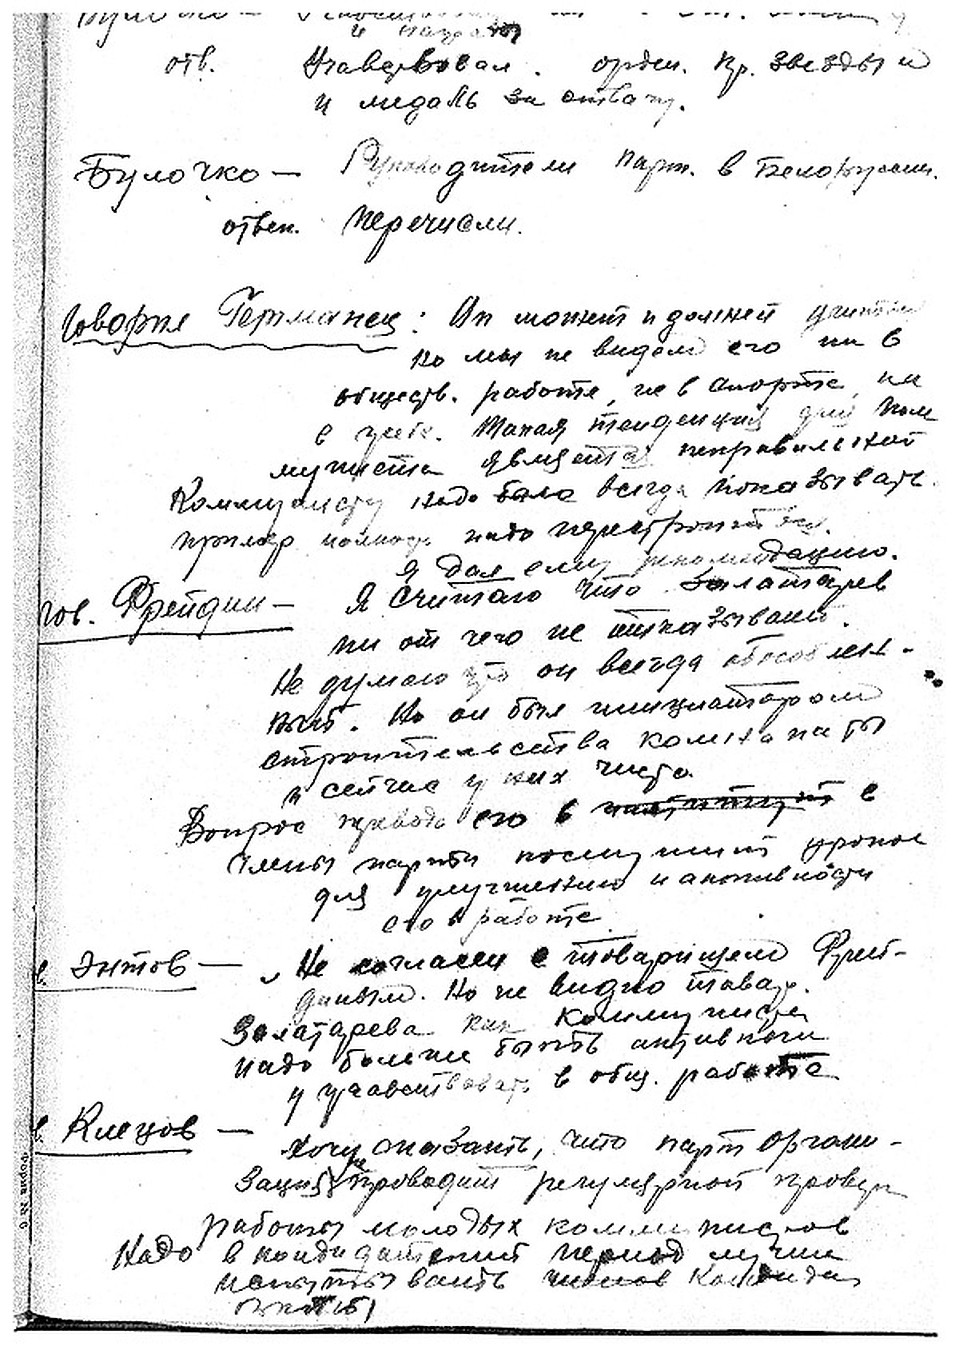 и награды
отв. Участвовал. орден. Кр. звезды и
и медаль за отвагу.
Булочко — Руководители парт. в Белоруссии.
ответ. перечисли.
Говорил Германец: Он может и должен
но мы не видем его ни в
обществ. работе, не в спорте, ни
в учебе. Такая тенденция для ком
муниста является неправильной
Коммунисту надо было всегда показывать
пример надо перестроится.
Я дал ему рекомендацию.
Тов. Фрейдин — Я считаю что Залатарев
ни от чего не отказывают.
Не думаю что он всегда обособлен-
ный. Но он был инициатором
строительства комнаты
и сейчас у них чисто.
Вопрос его в с
члены партии послужит уроком
для улучшению и активности
его в работе
в. Энтов — Не согласен с товарищем Фрей-
диным. Но не видно товар.
Залатарева как коммуниста
надо больше быть активном
и учавствовать в общ. работе
в. Клецов — Хочу сказать, что парт органи-
зация проводит регулярной провер
работы молодых коммунистов
Надо в кандидатский период лучше
испытывать членов кандида